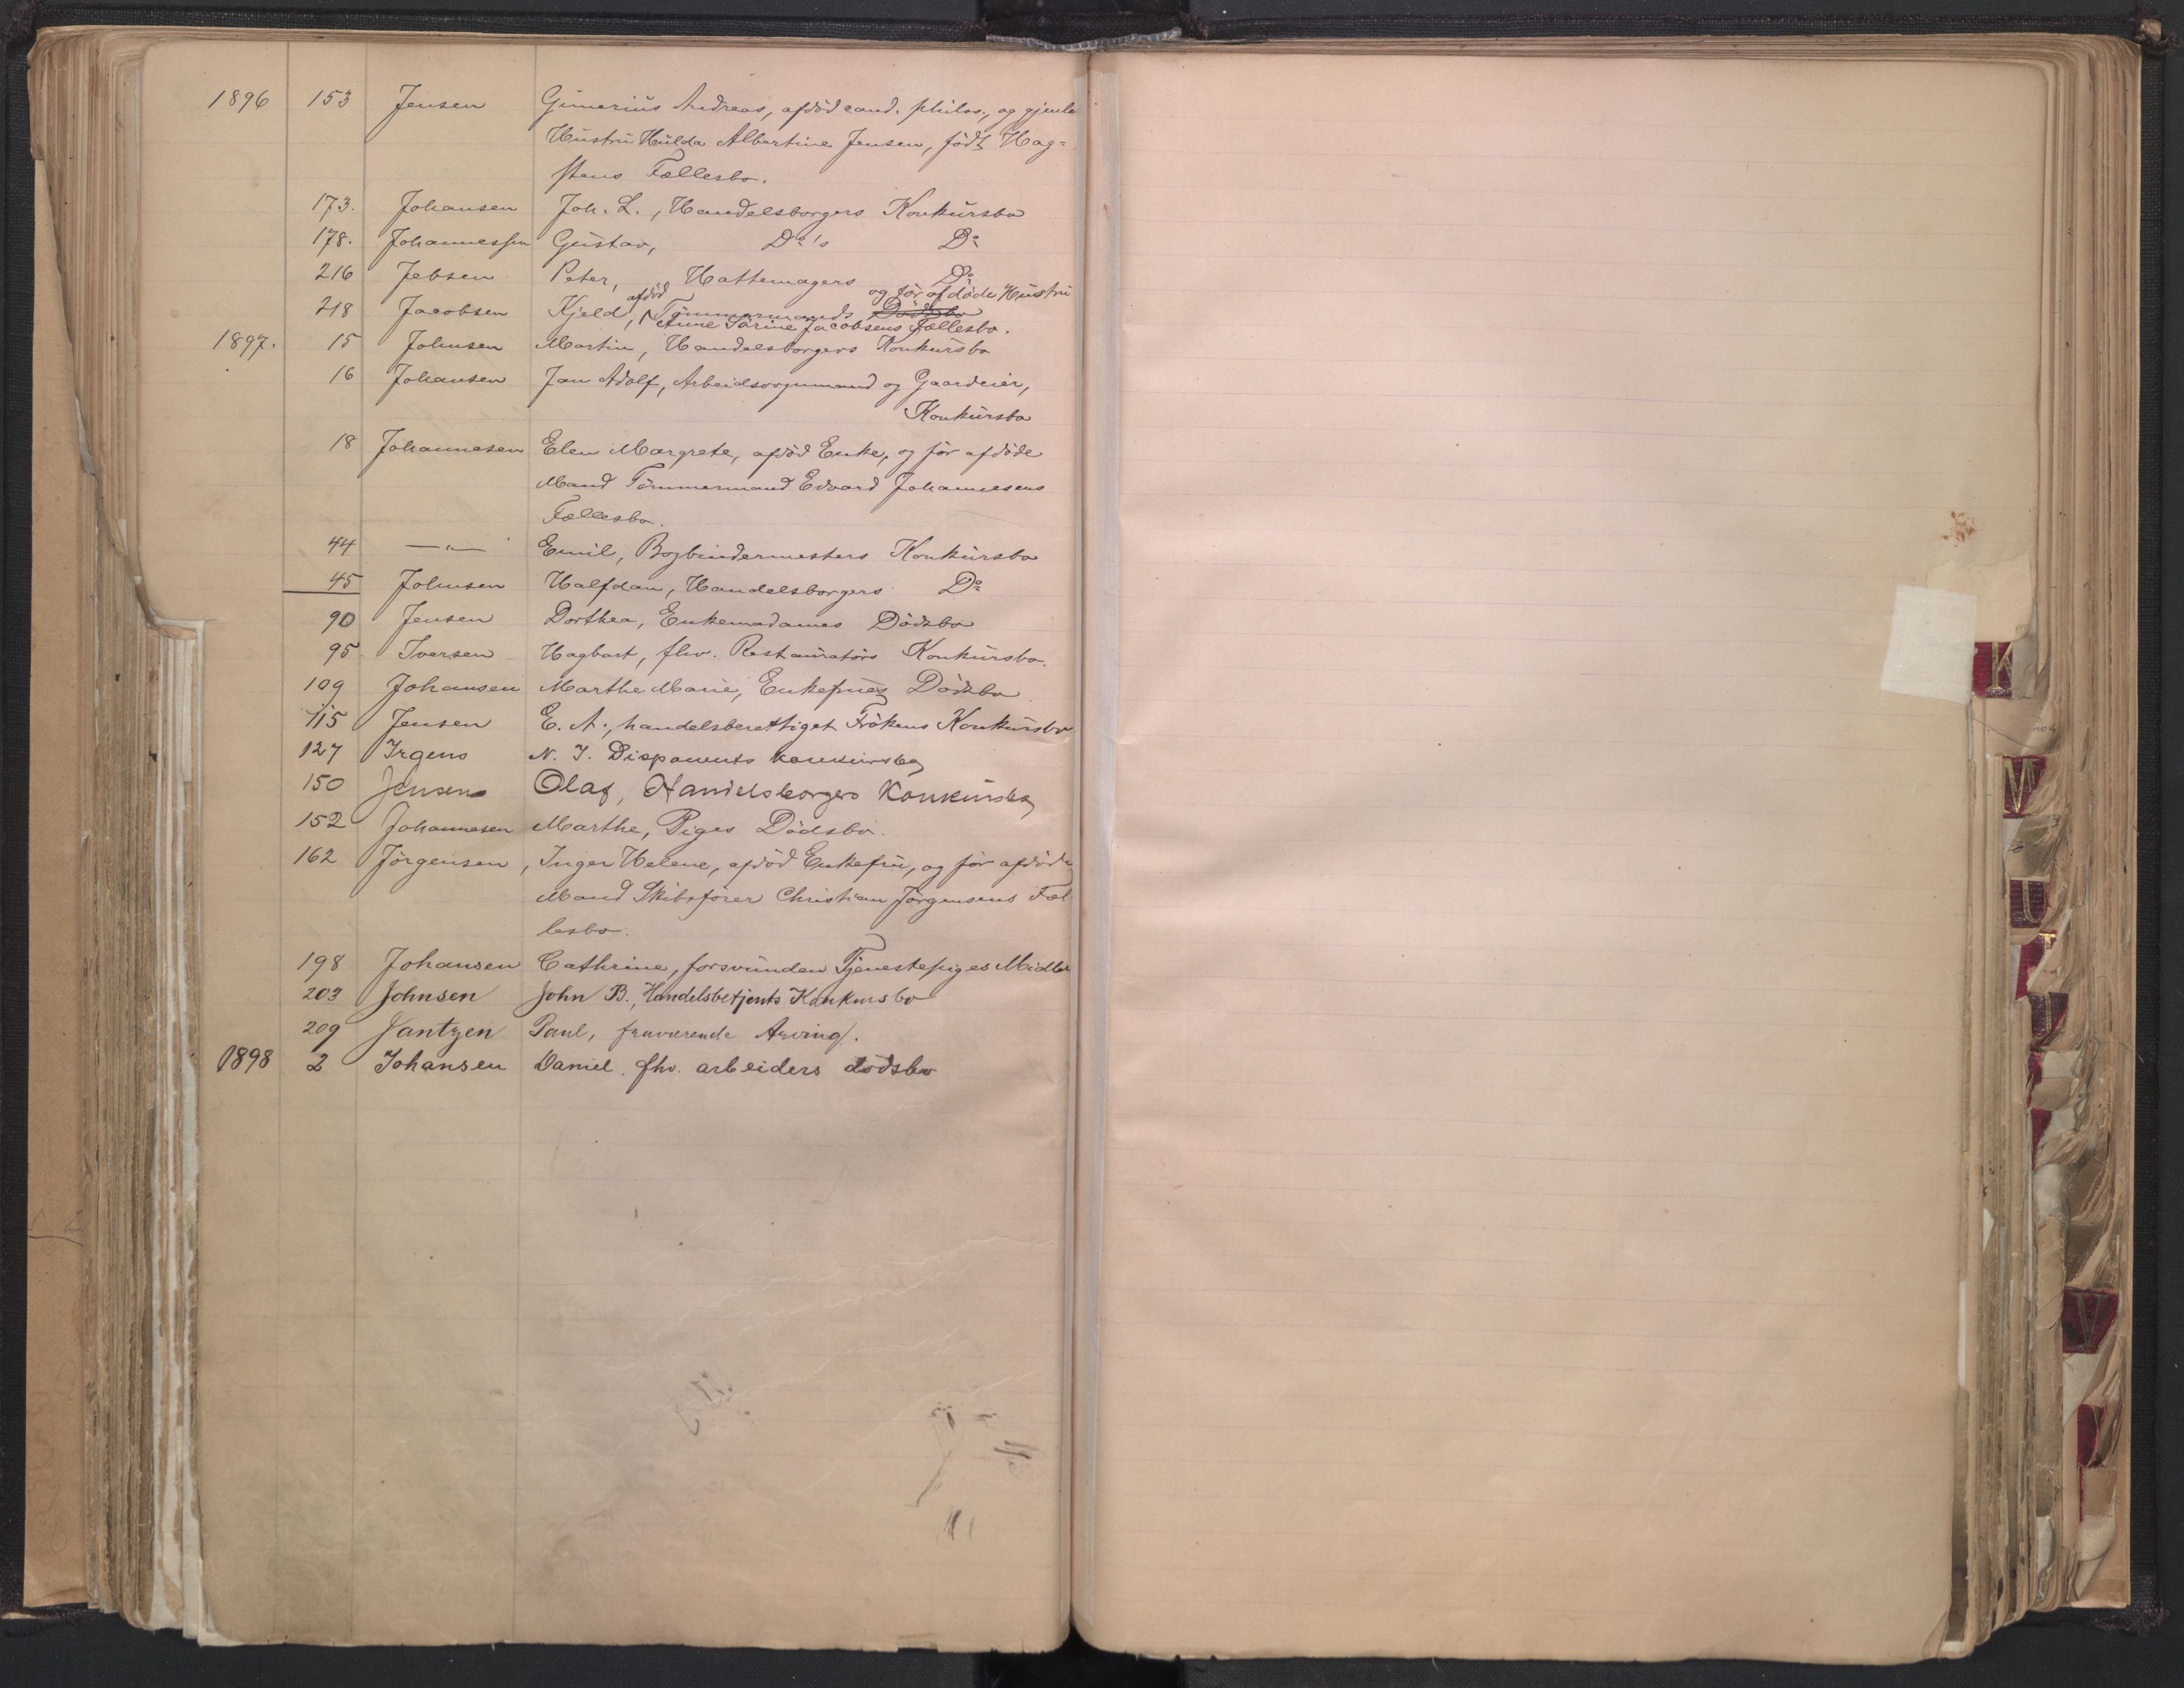 1896 153 Jensen Gunerius Andreas, afdöd cand. philos., og gjenle
Hustru Hulda Albertine Jensen, födt Hag-
stens Fællesbo.
173. Johansen Joh. L., Handelsborgers Konkursbo
178. Johannessen Gustav, Do's Do
216 Jebsen Peter, Hattemagers Do
afdöd og för afdöde Hustru
218 Jacobsen Kjeld, Tömmermands Dödsbo
Anne Sörine Jacobsens Fællesbo.
1897. 15 Johnsen Martin, Handelsborgers Konkursbo
16 Johansen Jan Adolf, Arbeidsvognmand og Gaardeier,
Konkursbo
18 Johannesen Elen Margrete, afdöd Enke, og för afdöde
Mand Tömmermand Edvard Johannesens
Fællesbo.
44 —„— Emil, Bogbindermesters Konkursbo
45 Johnsen Halfdan, Handelsborgers Do
90 Jensen Dorthea, Enkemadames Dödsbo
95 Iversen Hagbart, fhv. Restauratörs Konkursbo.
109 Johansen Marthe Marie, Enkefrues Dödsbo
115 Jensen E. A., handelsberettiget Frökens Konkursbo
127 Irgens N. J. Disponents konkursbo
150 Jensen Olaf, Handelsborgers Konkursbo
152 Johannesen Marthe, Piges Dödsbo.
162 Jörgensen, Inger Helene, afdöd Enkefru, og för afdöde
Mand Skibsförer Christian Jörgensens Fæl
lesbo.
198 Johansen Cathrine, forsvunden Tjenestepiges Midler
203 Johnsen John B., Handelsbetjents Konkursbo
209 Jantzen Paul, fraværende Arving.
1898 2 Johansen Daniel. fhv. arbeiders dödsbo
K
M
U
V